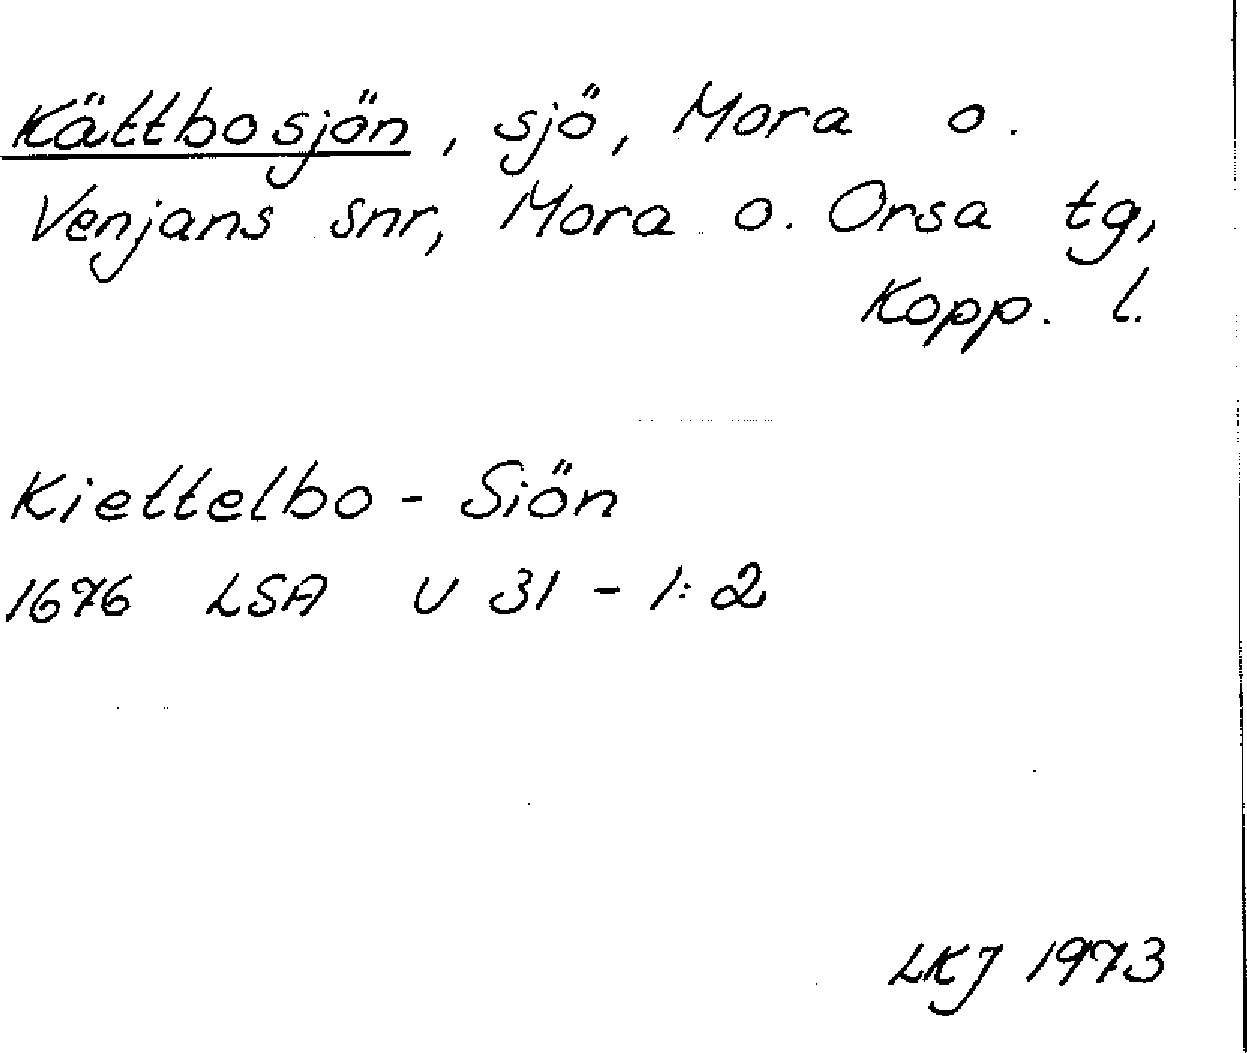 Kättbosjön, sjö, Mora o.
Venjans snr, Mora o. Orsa tg,
Kopp. l.
Kiettelbo - Siön
1676 LSA U 31 - 1:2
LKJ 1973